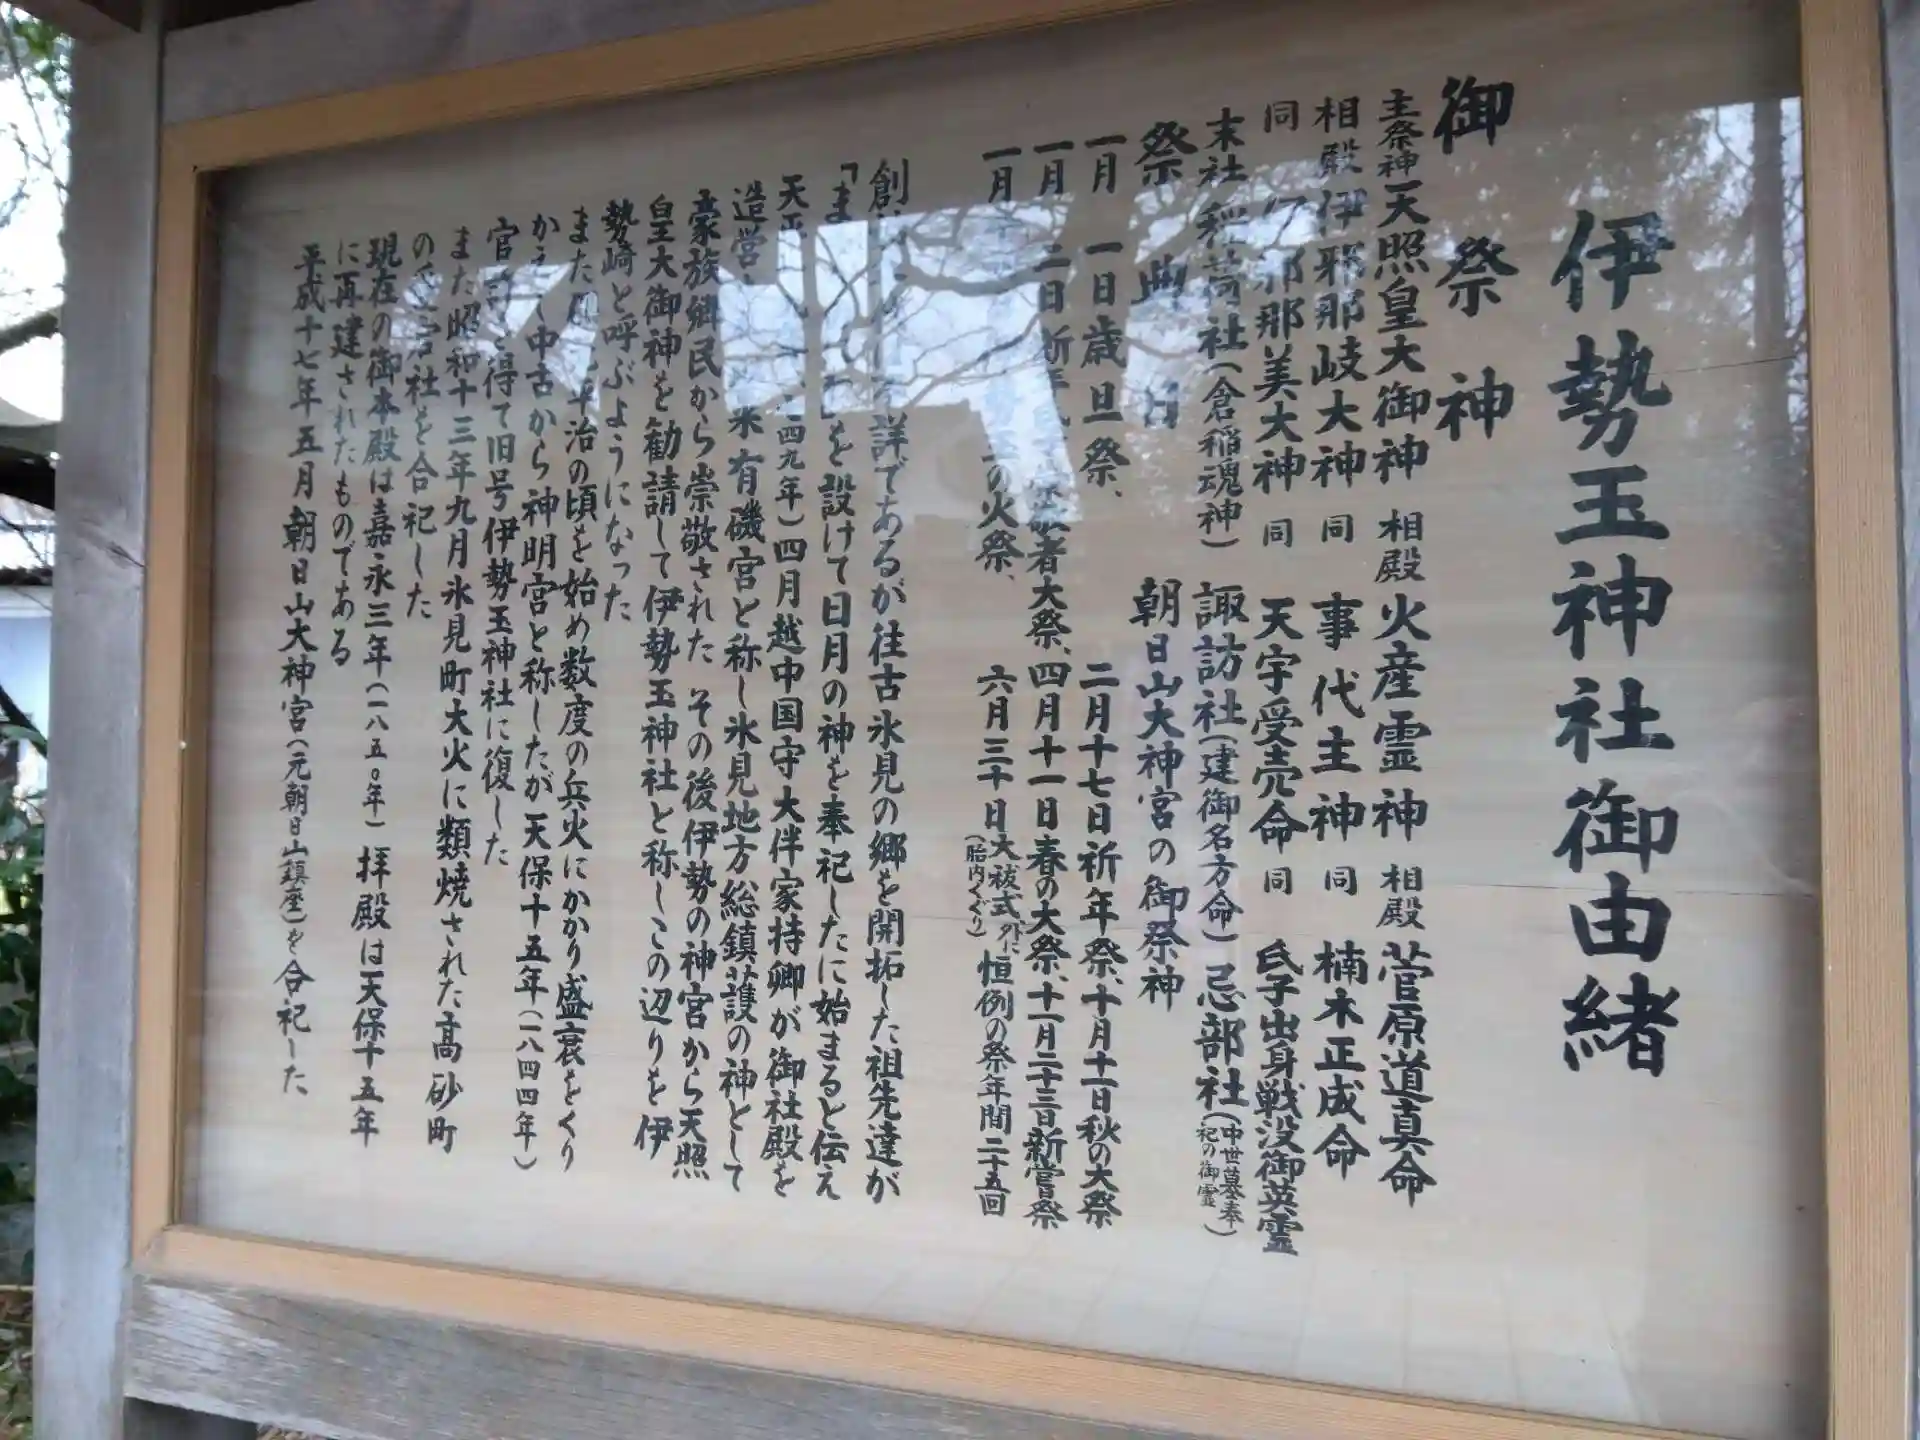 伊勢玉神社御由緒
御祭神
主祭神 天照皇大御神 相殿 火産霊神 相殿 菅原道真命
相殿 伊邪那岐大神 同 事代主神 同 楠木正成命
同 邪那美大神 同 天宇受売命 同 氏子出身戦没御英霊
末社 稲荷社(倉稲魂神) 諏訪社(建御名方命) 忌部社(中世墓奉祀の御霊)
祭典日 朝日山大神宮の御祭神
一月一日歳旦祭、二月十七日祈年祭、十月十一日秋の大祭
一月二日祈年 敬者大祭、四月十一日春の大祭、十一月二十三日新嘗祭
一月 の火祭、六月三十日大祓式(胎内くぐり)外に恒例の祭年間二十五回
創 詳であるが往古氷見の郷を開拓した祖先達が
「ま を設けて日月の神を奉祀したに始まると伝え
天平 四九年)四月越中国守大伴家持卿が御社殿を
造営 来有磯宮と称し氷見地方総鎮護の神として
豪族郷民から崇敬された その後伊勢の神宮から天照
皇大御神を勧請して伊勢玉神社と称しこの辺りを伊
勢崎と呼ぶようになった
また 平治の頃を始め数度の兵火にかかり盛衰をくり
かえし中古から神明宮と称したが天保十五年(一八四四年)
官許を得て旧号伊勢玉神社に復した
また昭和十三年九月氷見町大火に類焼された高砂町
の 宮社を合祀した
現在の御本殿は嘉永三年(一八五〇年)拝殿は天保十五年
に再建されたものである
平成十七年五月朝日山大神宮(元朝日山鎮座)を合祀した